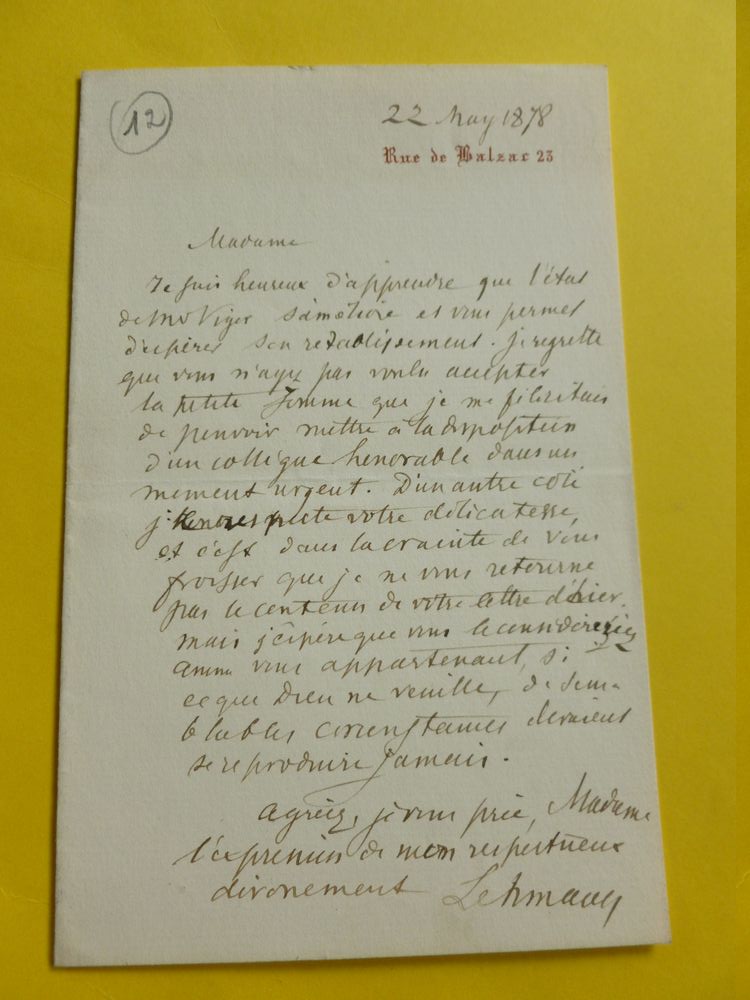 12
22 May 1878
Rue de Balzac 23
Madame
Je suis heureux d'apprendre que l'état
de Mr Viger s'améliore et vous permet
d'espérer son rétablissement. Je regrette
que vous n'ayez pas voulu accepter
la petite somme que je me félicitais
de pouvoir mettre à la disposition
d'un collègue honorable dans un
moment urgent. D'un autre côté
je respecte votre délicatesse,
et c'est dans la crainte de vous
froisser que je ne vous retourne
pas le contenu de votre lettre d'hier,
mais j'espère que vous le considérerez
comme vous appartenant, si
ce que Dieu ne veuille, de sem-
blables circonstances devaient
se reproduire jamais.
Agréez, je vous prie, Madame
l'expression de mon respectueux
dévouement Lehmann